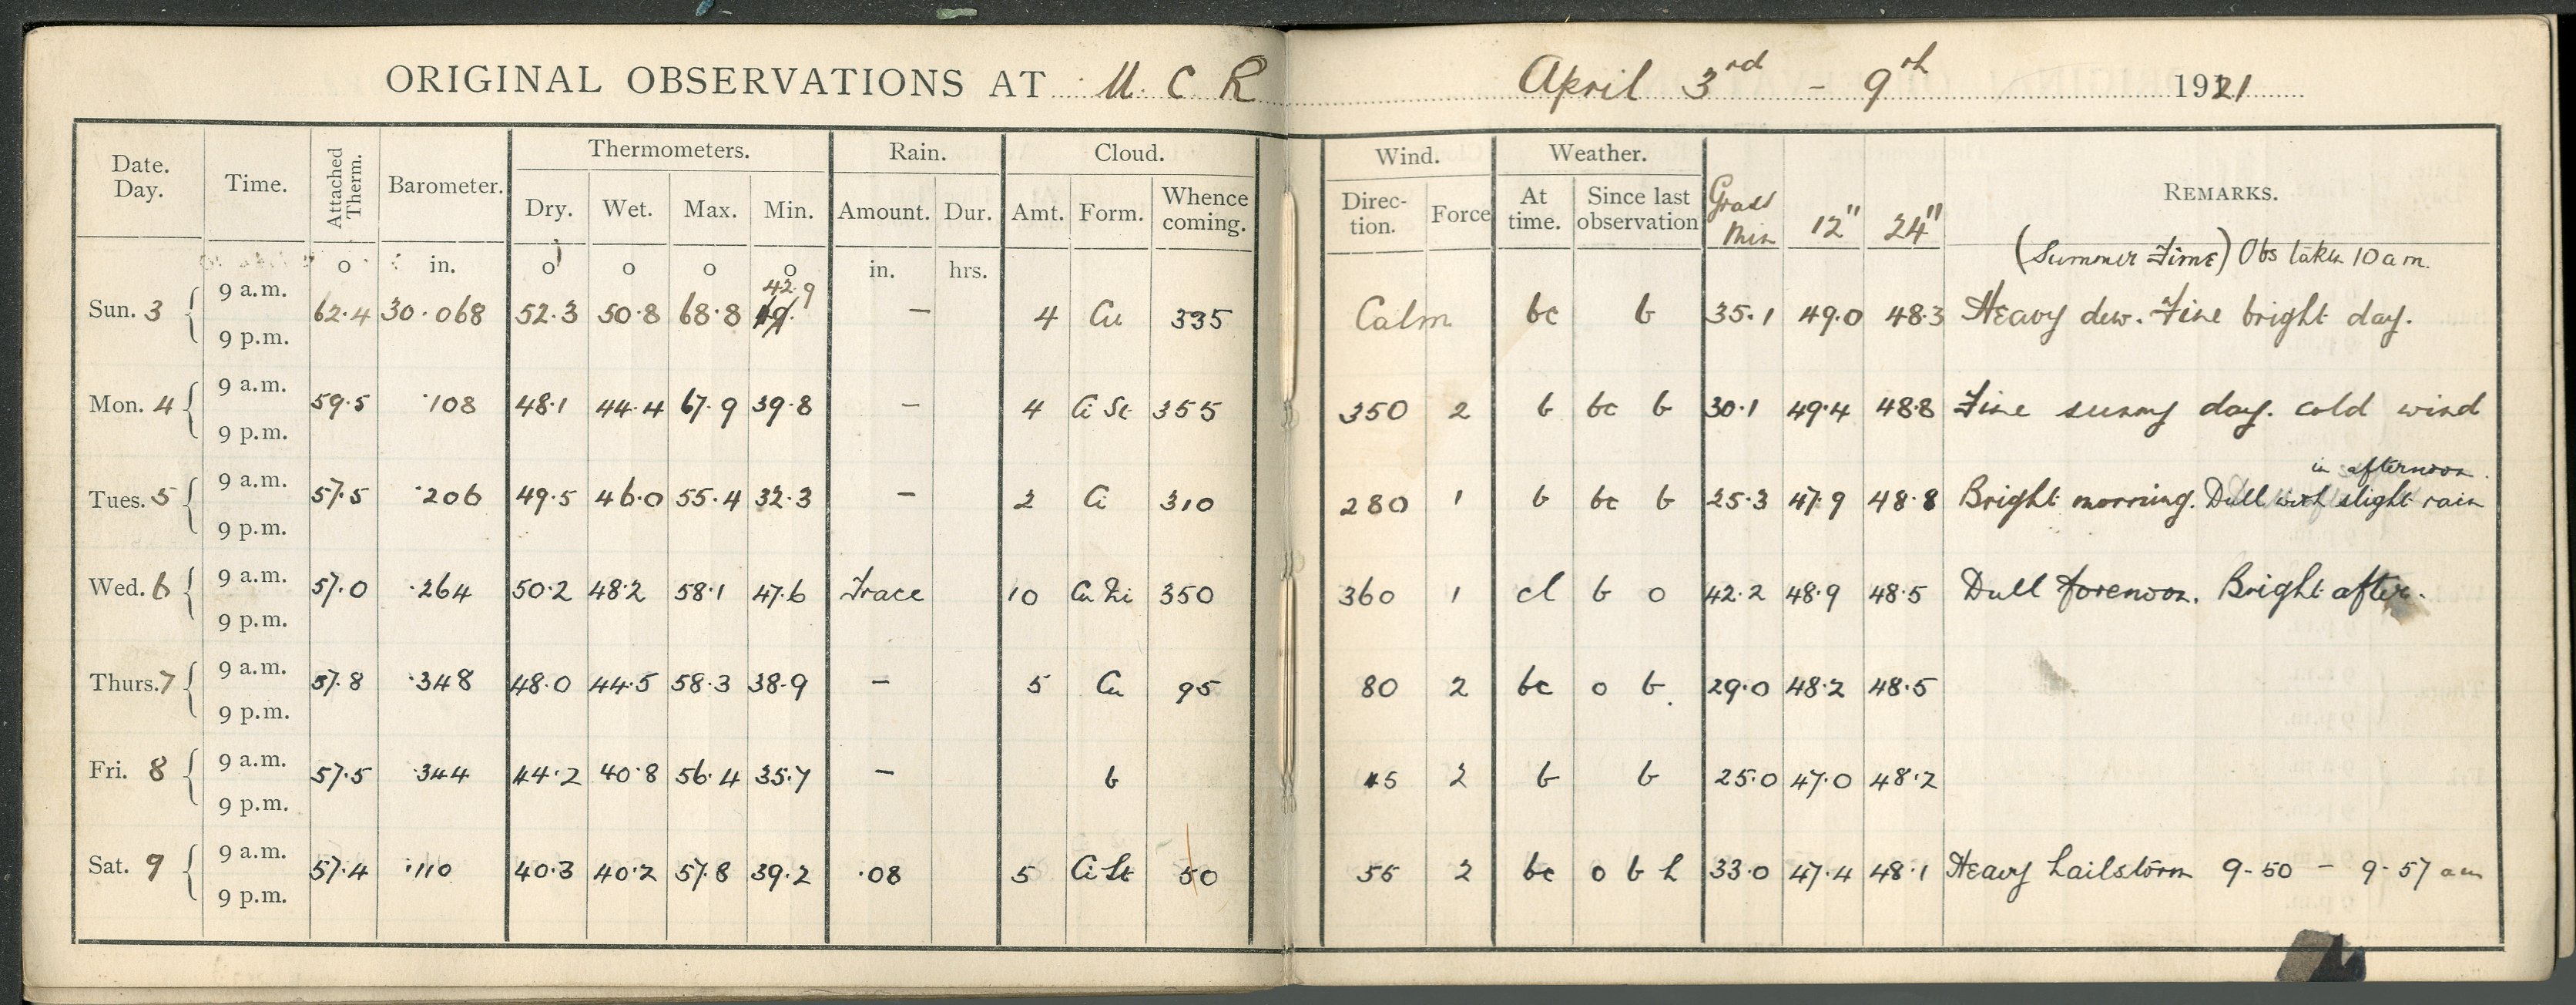 ORIGINAL OBSERVATIONS AT M. C R April 3rd - 9th 1921
Date. Day. Time. Attached Therm. Barometer. Thermometers. Rain. Cloud. Wind. Weather. REMARKS.
Dry. Wet. Max. Min. Amount. Dur. Amt. Form. Whence coming. Direc-tion. Force At time. Since last observation Grass Min 12" 24"
o in. o o o o in. hrs. (Summer Time) Obs taken 10 a m.
9 a.m. 42.9
Sun. 3 62.4 30.068 52.3 50.8 68.8 — 4 Cu 335 Calm bc b 35.1 49.0 48.3 Heavy dew. Fine bright day.
9 p.m.
9 a.m.
Mon. 4 59.5 .108 48.1 44.4 67.9 39.8 — 4 Ci St 355 350 2 b bc b 30.1 49.4 48.8 Fine sunny day. cold wind
9 p.m.
9 a.m. in afternoon.
Tues. 5 57.5 .206 49.5 46.0 55.4 32.3 — 2 Ci 310 280 1 b bc b 25.3 47.9 48.8 Bright morning. Dull with slight rain
9 p.m.
9 a.m.
Wed. 6 57.0 .264 50.2 48.2 58.1 47.6 Trace 10 Cu Ni 350 360 1 cl b o 42.2 48.9 48.5 Dull forenoon. Bright after.
9 p.m.
9 a.m.
Thurs. 7 57.8 .348 48.0 44.5 58.3 38.9 — 5 Cu 95 80 2 bc o b 29.0 48.2 48.5
9 p.m.
9 a.m.
Fri. 8 57.5 .344 44.2 40.8 56.4 35.7 — b 45 2 b b 25.0 47.0 48.2
9 p.m.
9 a.m.
Sat. 9 57.4 .110 40.3 40.2 57.8 39.2 .08 5 Ci St 50 55 2 bc o b h 33.0 47.4 48.1 Heavy hailstorm 9-50 - 9-57 am
9 p.m.